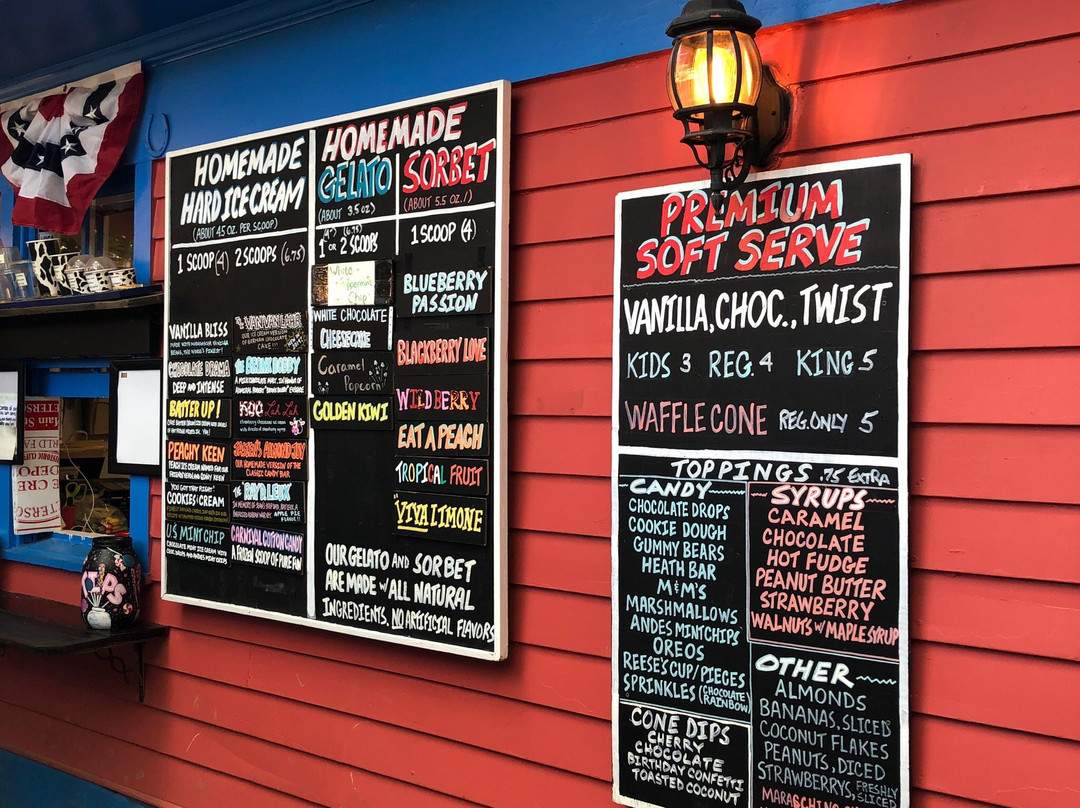 HOMEMADE
HARD ICE CREAM
(ABOUT 4.5 OZ. PER SCOOP)
1 SCOOP (4) 2 SCOOPS (6.75)
VANILLA BLISS
CHOCOLATE DRAMA
DEEP AND INTENSE
BATTER UP!
PEACHY KEEN
PEACH ICE CREAM NAMED FOR OUR
YOU GOT THAT RIGHT
COOKIES & CREAM
U.S. MINT CHIP
CHOCOLATE MINT ICE CREAM WITH
OUR HOMEMADE VERSION OF THE
CLASSIC CANDY BAR
THE RAY D. LEUX
APPLE PIE
CARNIVAL COTTON CANDY
A FROZEN SCOOP OF PURE FUN
HOMEMADE
GELATO
(ABOUT 3.5 OZ)
1 (4) OR 2 SCOOPS (6.75)
White
Peppermint
Chip
WHITE CHOCOLATE
CHEESECAKE
Caramel
Popcorn
GOLDEN KIWI
SORBET
(ABOUT 5.5 OZ.!)
1 SCOOP (4)
BLUEBERRY
PASSION
BLACKBERRY LOVE
WILD BERRY
EAT A PEACH
TROPICAL FRUIT
"VIVA LIMONE
OUR GELATO AND SORBET
ARE MADE W/ ALL NATURAL
INGREDIENTS. NO ARTIFICIAL FLAVORS
PREMIUM
SOFT SERVE
VANILLA, CHOC., TWIST
KIDS 3 REG. 4 KING 5
WAFFLE CONE REG. ONLY 5
TOPPINGS .75 EXTRA
CANDY
CHOCOLATE DROPS
COOKIE DOUGH
GUMMY BEARS
HEATH BAR
M&M'S
MARSHMALLOWS
ANDES MINT CHIPS
OREOS
REESE'S CUP/PIECES
SPRINKLES (CHOCOLATE/
RAINBOW)
CONE DIPS
CHERRY
CHOCOLATE
BIRTHDAY CONFETTI
TOASTED COCONUT
SYRUPS
CARAMEL
CHOCOLATE
HOT FUDGE
PEANUT BUTTER
STRAWBERRY
WALNUTS W/ MAPLE SYRUP
OTHER
ALMONDS
BANANAS, SLICED
COCONUT FLAKES
PEANUTS, DICED
STRAWBERRYS, FRESHLY
SLICED